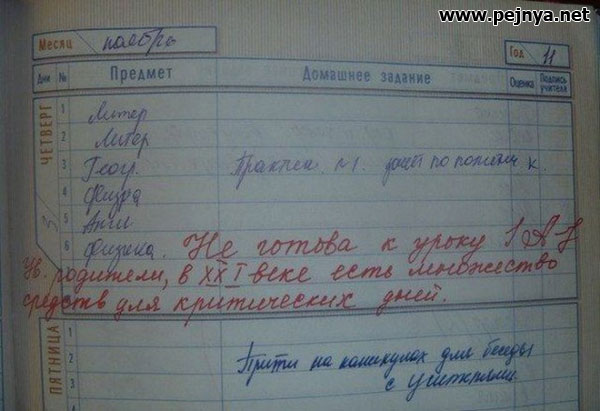 www.pejnya.net
Месяц ноябрь
Год 11
Дни № Предмет Домашнее задание Оценка Подпись учителя
ЧЕТВЕРГ 3
1 Литер
2 Литер
3 Геогр. Практич. №1.
4 Физра
5 Англ
6 Физика. Не готова к уроку
Ув. родители, в XXI веке есть множество
средств для критических дней.
ПЯТНИЦА
1
2 Прийти на каникулах для беседы
3 с учителями